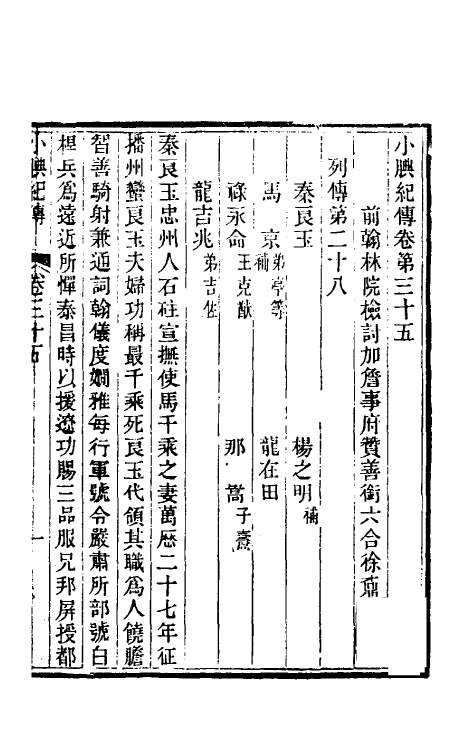 小腆紀傳卷第三十五
前翰林院檢討加詹事府贊善銜六合徐鼒
列傳第二十八
秦良玉　楊之明補
馬京弟亭等補　龍在田
祿永命王克猷　那嵩子燾
龍吉兆弟吉佐
秦良玉忠州人石砫宣撫使馬千乘之妻萬厤二十七年征
播州蠻良玉夫婦功稱最千乘死良玉代領其職爲人饒膽
智善騎射兼通詞翰儀度嫻雅每行軍號令嚴肅所部號白
桿兵爲遠近所憚泰昌時以援遼功賜三品服兄邦屏授都
小腆紀傳　卷三十五　一